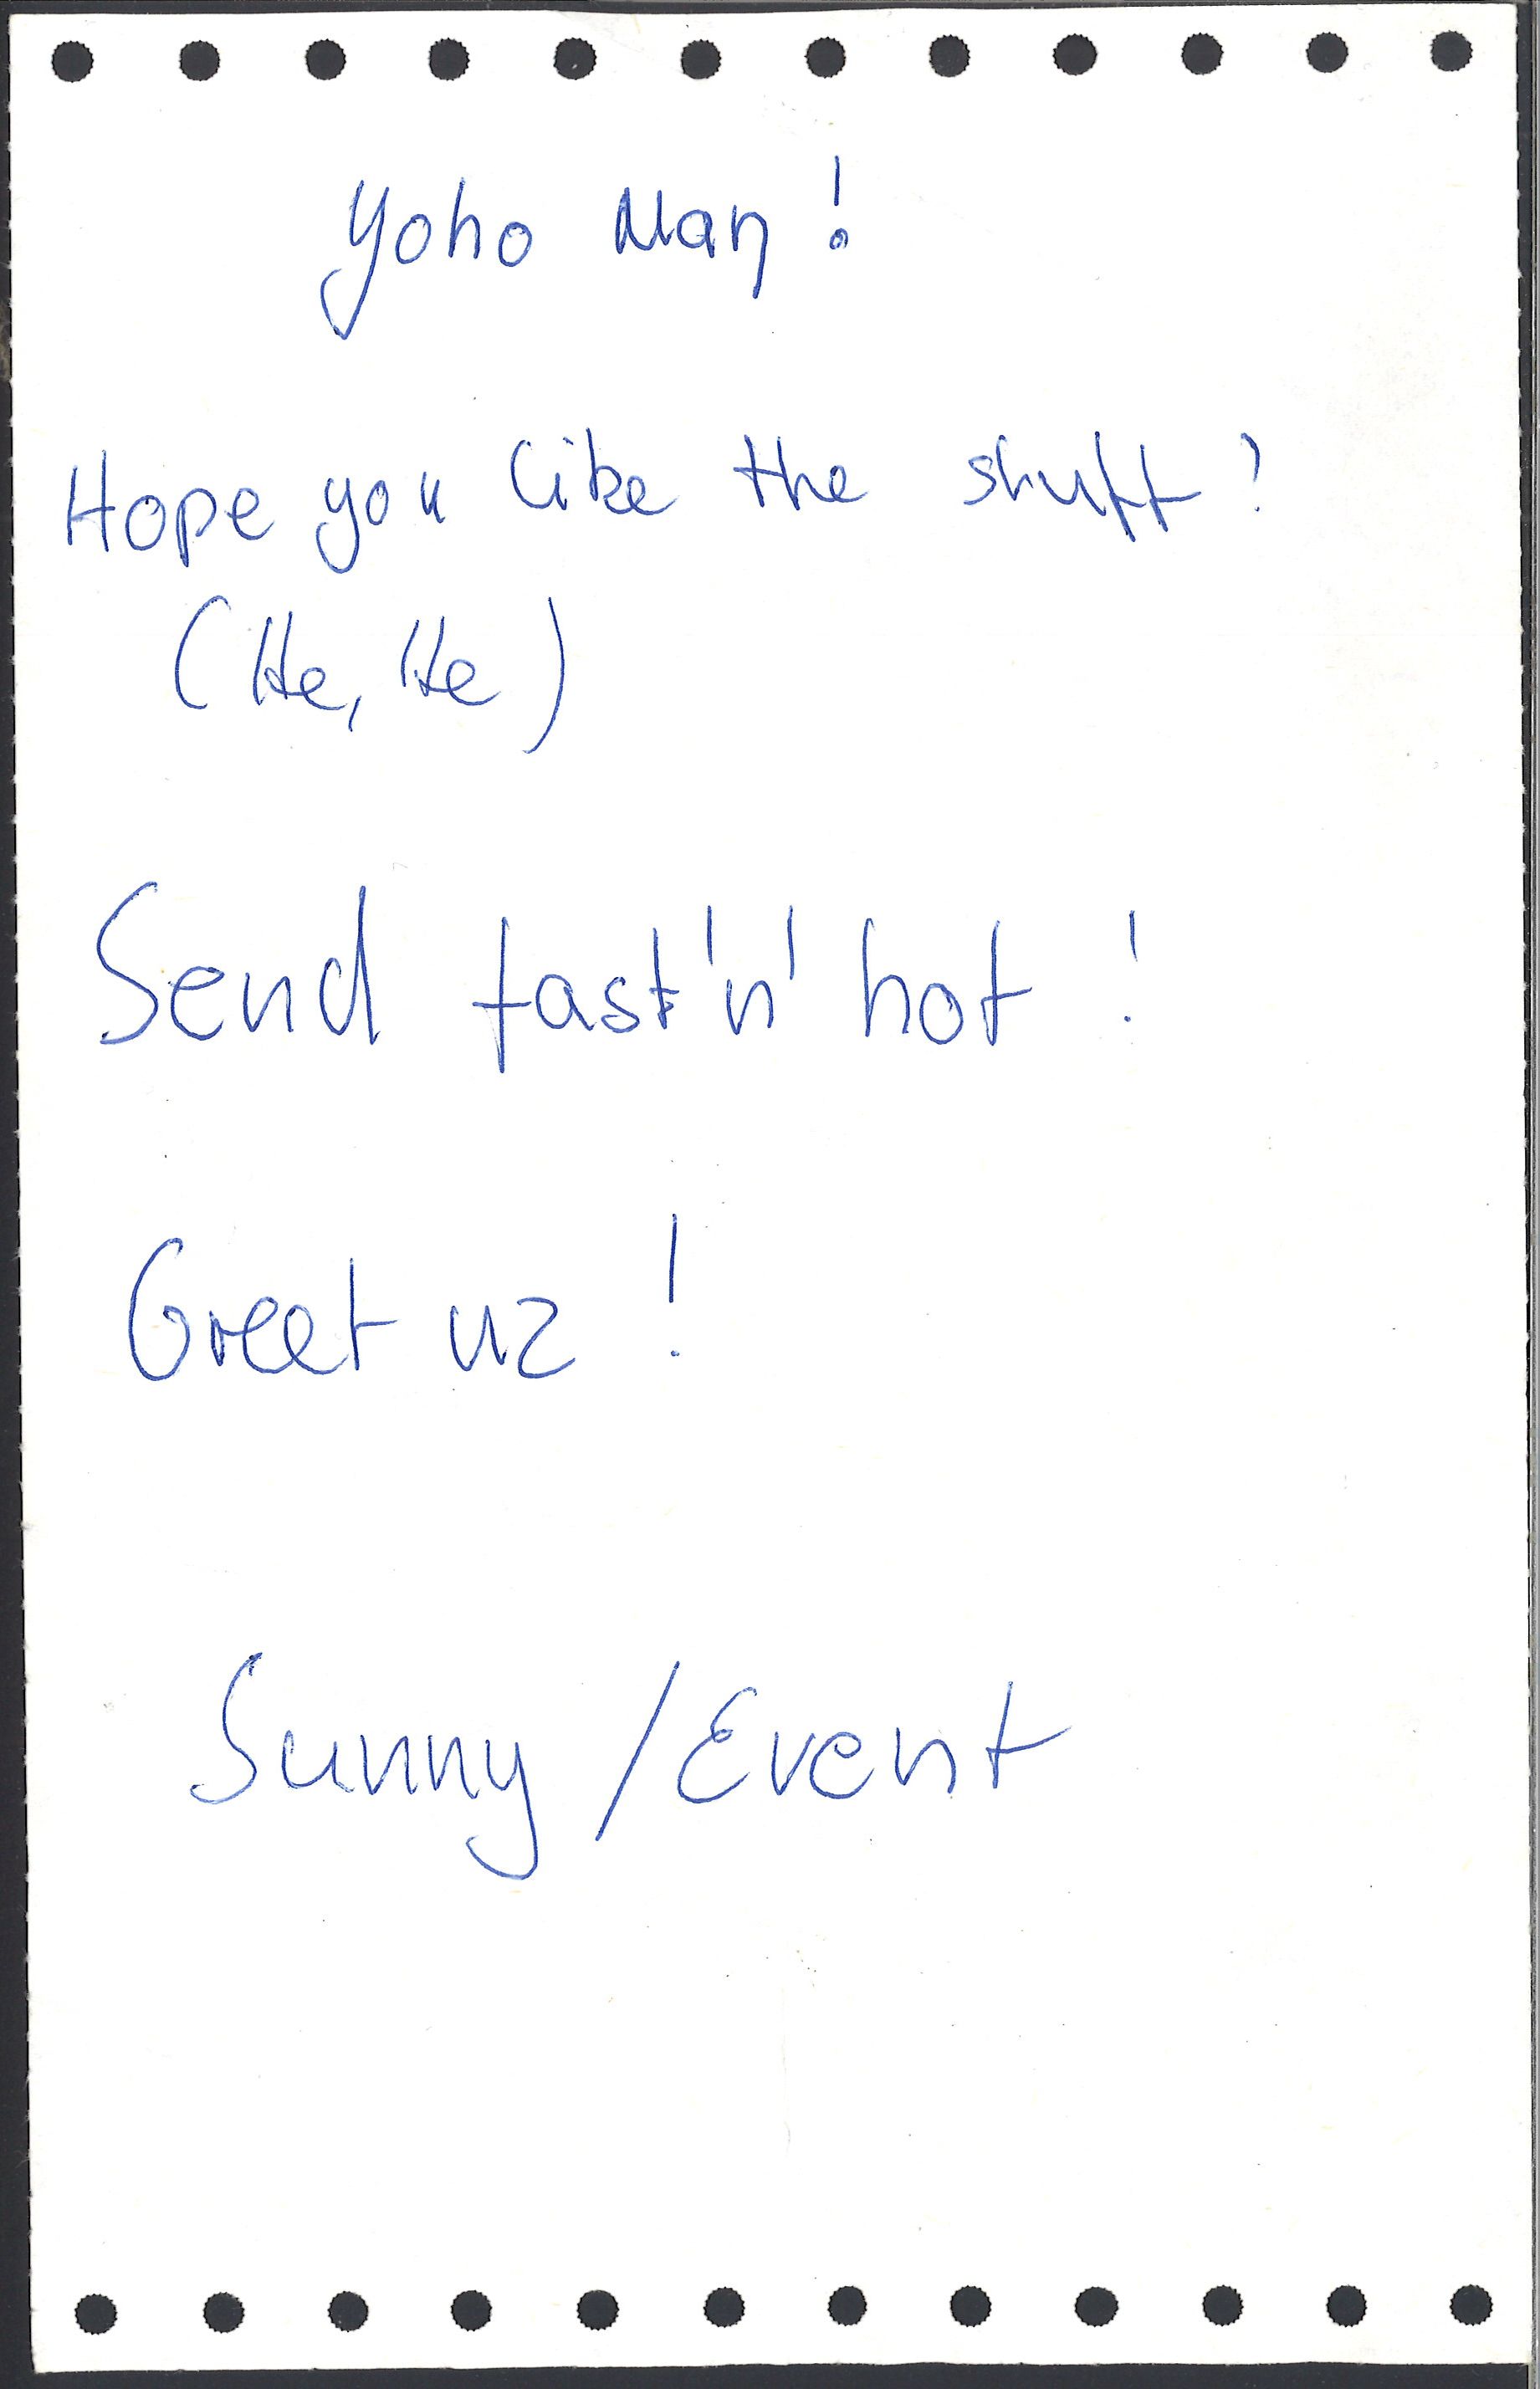 Yoho Man!
Hope you like the stuff?
(He, He)
Send fast'n'hot!
Greet uz!
Sunny / Event